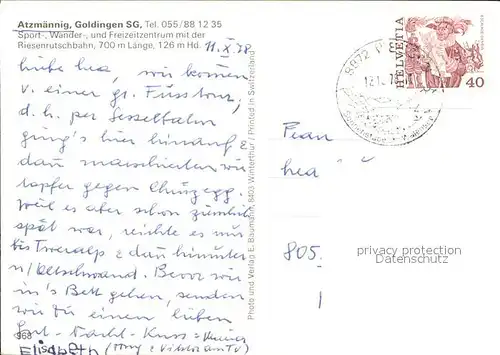 Atzmännig, Goldingen SG, Tel. 055/88 12 35
Sport-, Wander-, und Freizeitzentrum mit der
Riesenrutschbahn, 700 m Länge, 126 m Hd.
11.X.78
liebe hea, wir kommen
v. einer gr. Fusstour,
d.h. per Sesselbahn
ging's hier hinauf &
dann marschierten wir
tapfer gegen Chrüzegg.
Weil es aber schon ziemlich
spät war, reichte es nur
bis Tweralp & dann hinunter
n/ Bevor wir
in's Bett gehen, senden
wir dir einen lieben
Gut-Nacht-Kuss
Elisabeth
968
Photo und Verlag E. Baumann, 8403 Winterthur / Printed in Switzerland
8872
HELVETIA
40
Frau
hea
805
1
privacy protection
Datenschutz